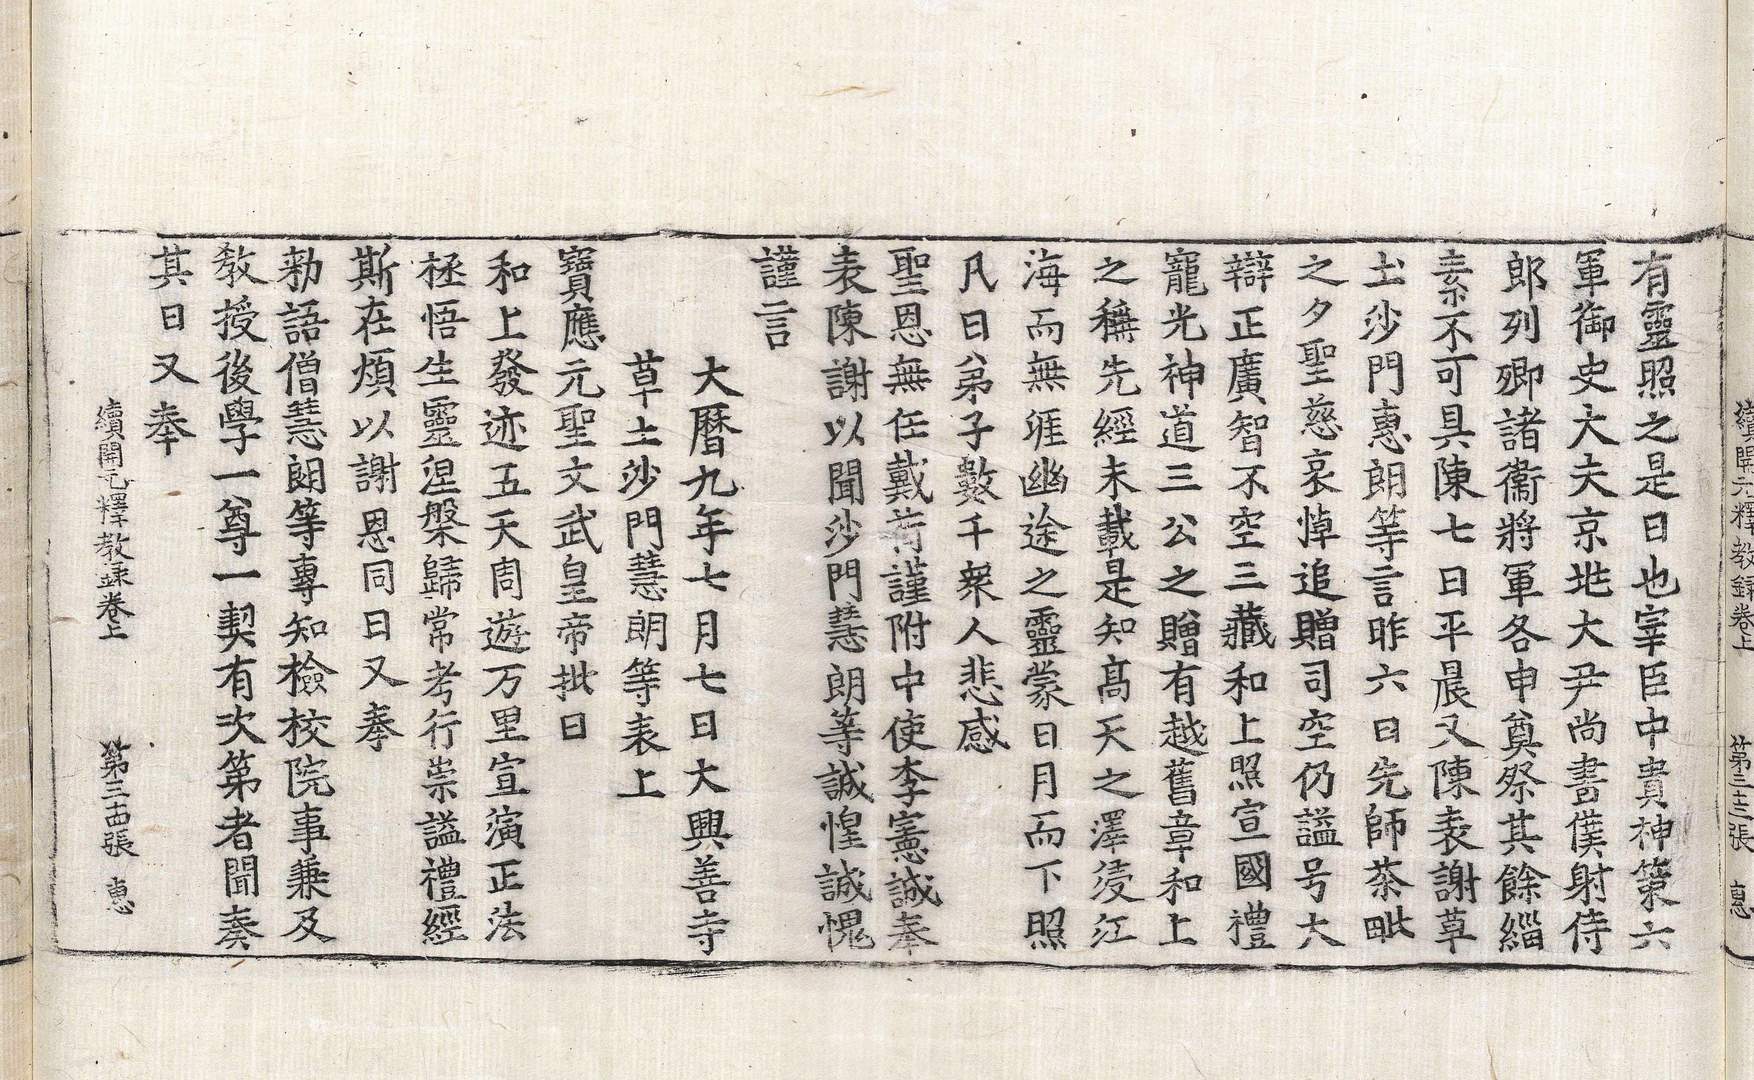 有靈照之是日也宰臣中貴神策六
軍御史大夫京兆大尹尚書僕射侍
郎列卿諸衛將軍各申奠祭其餘緇
素不可具陳七日平晨又陳表謝草
土沙門惠朗等言昨六日先師茶毗
之夕聖慈哀悼追贈司空仍謚号大
辯正廣智不空三藏和上照宣國禮
寵光神道三公之贈有越舊章和上
之稱先經未載是知高天之澤浸江
海而無涯幽途之靈蒙日月而下照
凡日弟子數千衆人悲感
聖恩無任戴荷謹附中使李憲誠奉
表陳謝以聞沙門慧朗等誠惶誠愧
謹言
大曆九年七月七日大興善寺
草土沙門慧朗等表上
寶應元聖文武皇帝批曰
和上發迹五天周遊万里宣演正法
拯悟生靈涅槃歸常考行崇謚禮經
斯在煩以謝恩同日又奉
勑語僧慧朗等專知檢校院事兼及
教授後學一尊一契有次第者聞奏
其日又奉
續開元釋教錄卷上 第三十四張 惠
續開元釋教錄卷上 第三十三張 惠